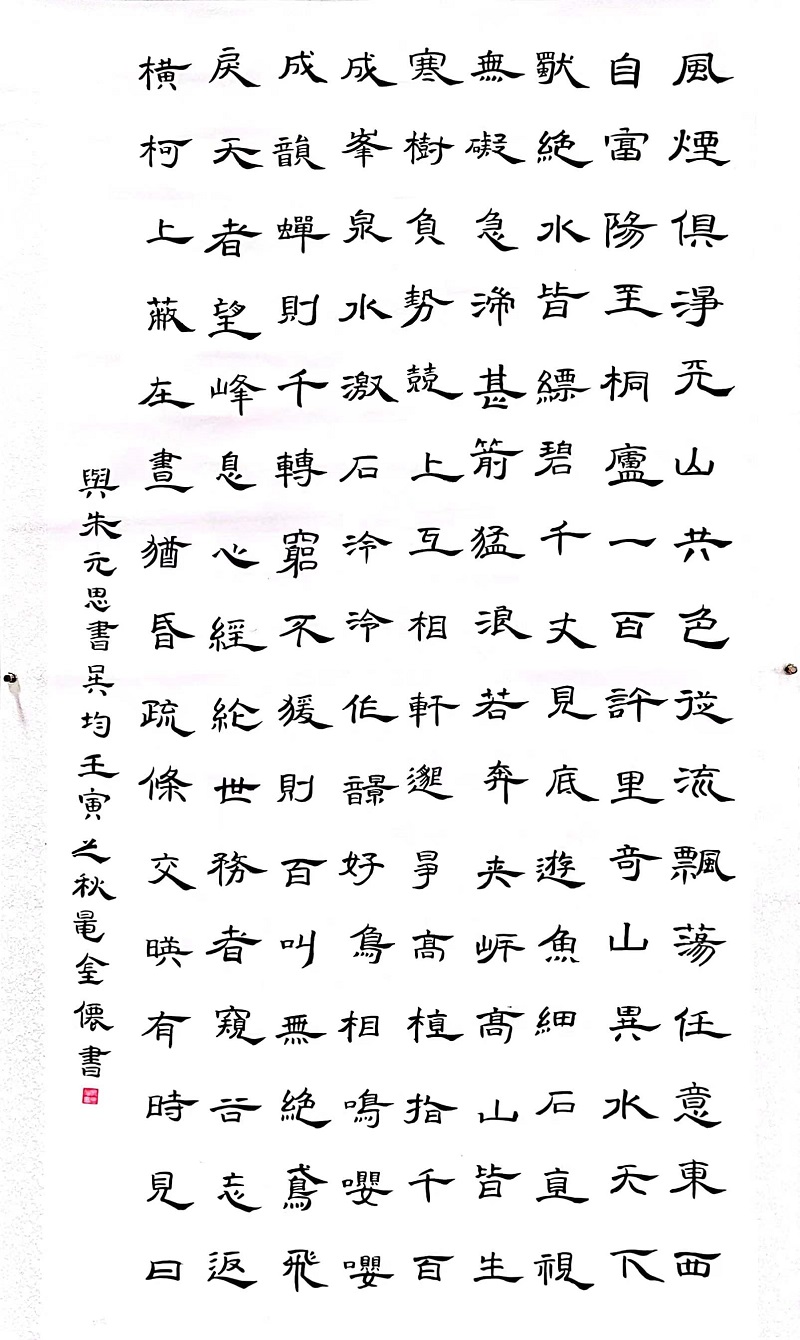 風煙俱淨天山共色從流飄蕩任意東西
自富陽至桐廬一百許里奇山異水天下
獨絶水皆縹碧千丈見底遊魚細石直視
無礙急湍甚箭猛浪若奔夾岸高山皆生
寒樹負勢競上互相軒邈爭高植指千百
成峯泉水激石泠泠作響好鳥相鳴嚶嚶
成韻蟬則千轉窮不猨則百叫無絶鳶飛
戾天者望峰息心經綸世務者窺谷忘返
橫柯上蔽在晝猶昏疏條交映有時見日
與朱元思書吳均壬寅之秋金書